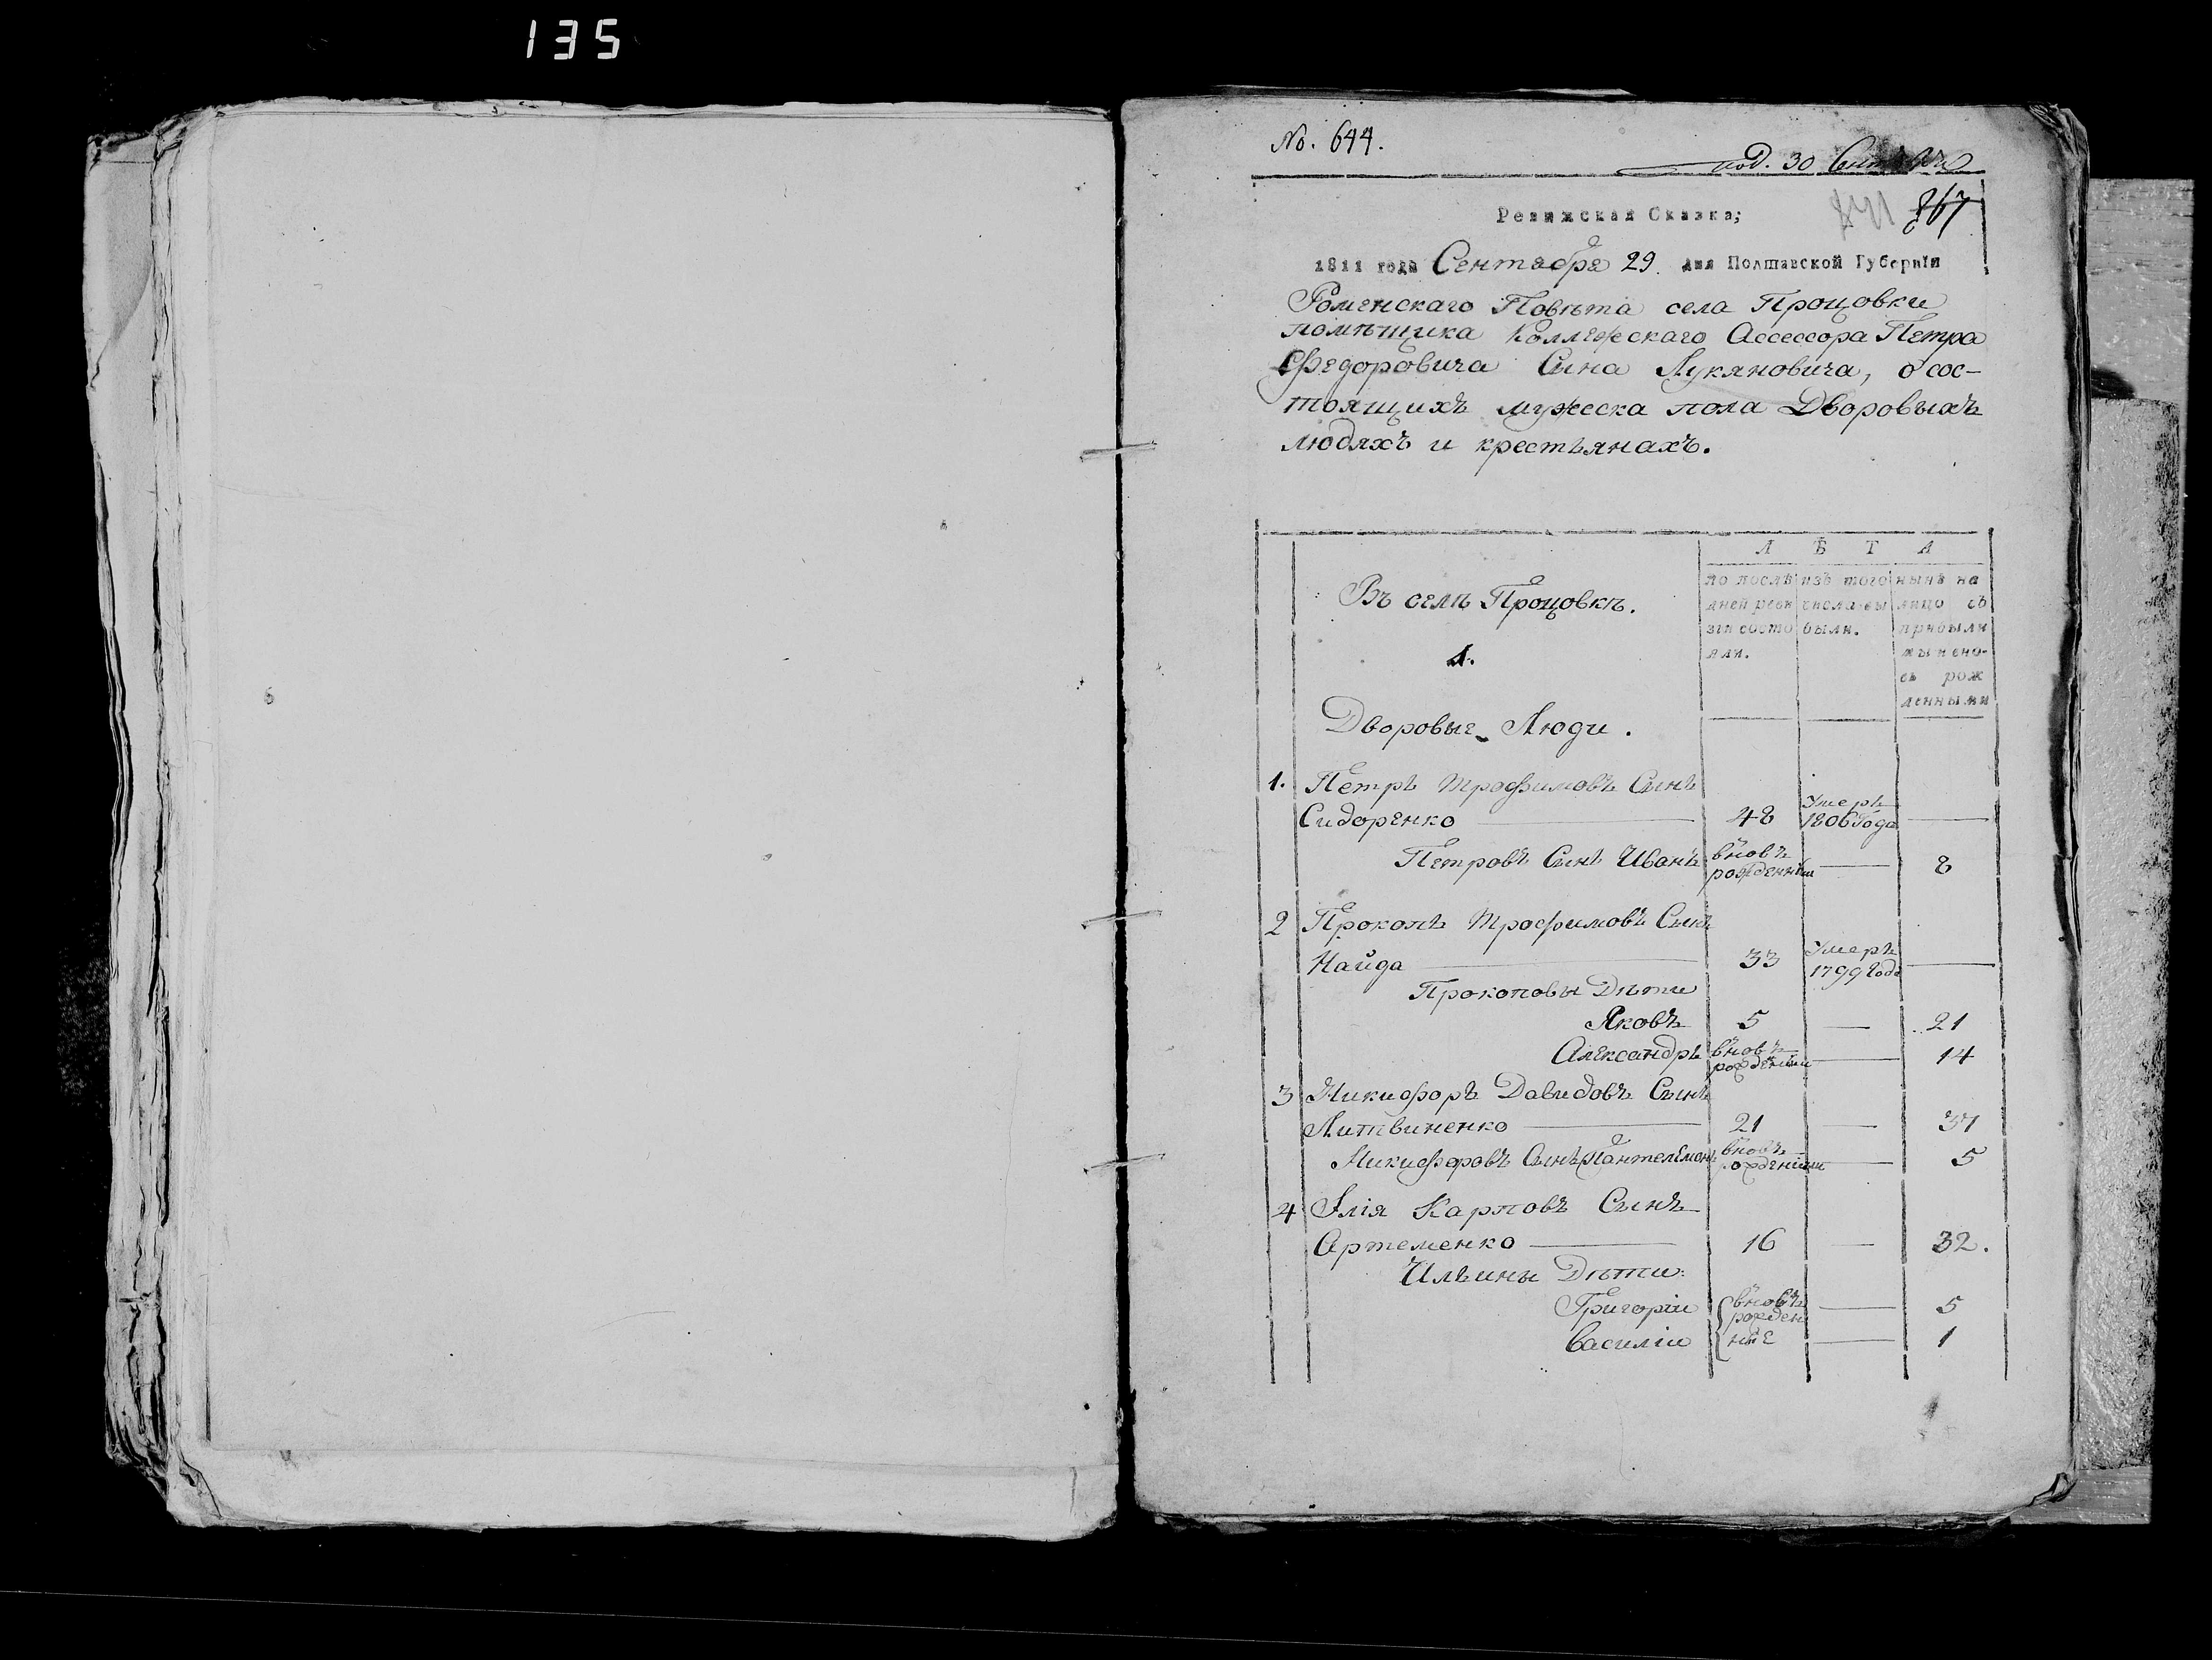 135
No. 644.
под. 30 Сентября
867
Ревижская Сказка;
1811 года Сентабра 29. дня Полтавской Губерніи
Роменскаго Повѣта села Процовки
помѣщика Коллежскаго Ассессора Петра
Федоровича Сына Лукяновича, о сос-
тоящихъ мужеска пола Дворовыхъ
людяхъ и крестьянахъ.
Л Ѣ Т А
Въ селѣ Процовкѣ.
1.
Дворовые Люди.
по послѣ
дней реви
зіи состо
яли.
изъ того
числа вы
были.
нынѣ на
лицо съ
прибыли
ми и ново-
съ рож
денными
1. Петръ Трофимовъ Сынъ
Сидоренко 48 Умеръ 1806 года —
Петровъ Сынъ Иванъ вновь рожденный — 8
2 Прокопъ Трофимовъ Сынъ
Найда 33 Умеръ 1799 года —
Прокоповы Дѣти
Яковъ 5 — 21
Александръ вновь рожденный — 14
3 Никифоръ Давидовъ Сынъ
Литвиненко 21 — 37
Никифоровъ Сынъ Пантелемонъ вновь рожденный — 5
4 Ілія Карповъ Сынъ
Артеменко 16 — 32.
Ильины Дѣти:
Григорій вновь рожден — 5
Василій ные — 1